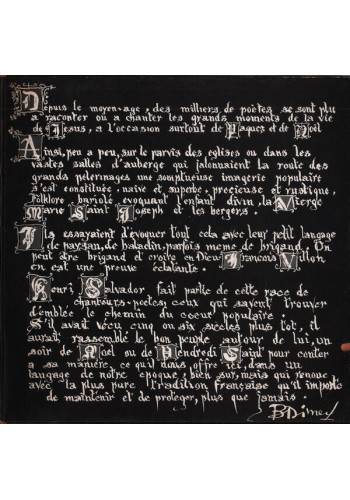 Depuis le moyen-age, des milliers de poètes se sont plu
a raconter ou a chanter les grands moments de la vie
de Jesus, a l'occasion surtout de Paques et de Noël
Ainsi, peu a peu, sur le parvis des eglises ou dans les
vastes salles d'auberge qui jalonnaient la route des
grands pelerinages une somptueuse imagerie populaire
s'est constituée, naïve et superbe, precieuse et rustique,
folklore, bariolé evoquant l'enfant divin, la Vierge
Marie Saint Joseph et les bergers.
Ils essayaient d'évoquer tout cela avec leur petit langage
de paysan, de baladin, parfois meme de brigand. On
peut être brigand et croire en Dieu: François Villon
en est une preuve éclatante.
Henri Salvador fait partie de cette race de
chanteurs-poetes, ceux qui savent trouver
d'emblée le chemin du coeur populaire:
S'il avait vécu cinq ou six siècles plus tot, il
aurait rassemblé le bon peuple autour de lui, un
soir de Noel ou de Vendredi Saint pour conter
a sa manière ce qu'il nous offre ici, dans un
langage de notre epoque, bien sur, mais qui renoue
avec la plus pure Tradition française qu'il importe
de maintenir et de proteger, plus que jamais.
B Dimey